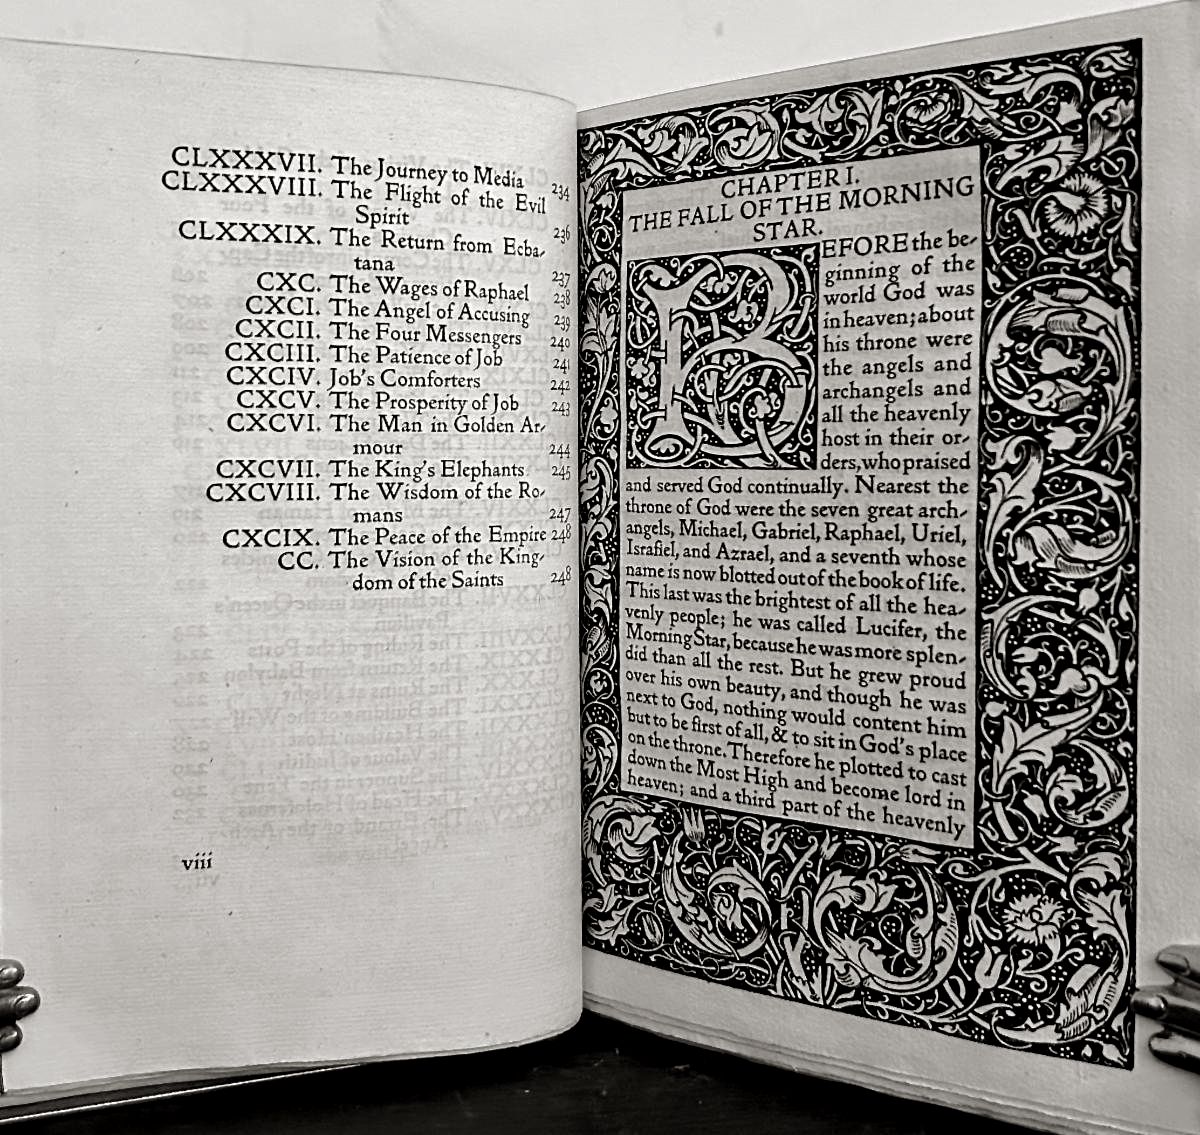 CLXXXVII. The Journey to Media 234
CLXXXVIII. The Flight of the Evil
Spirit 236
CLXXXIX. The Return from Ecba-
tana 237
CXC. The Wages of Raphael 238
CXCI. The Angel of Accusing 239
CXCII. The Four Messengers 240
CXCIII. The Patience of Job 241
CXCIV. Job's Comforters 242
CXCV. The Prosperity of Job 243
CXCVI. The Man in Golden Ar-
mour 244
CXCVII. The King's Elephants 245
CXCVIII. The Wisdom of the Ro-
mans 247
CXCIX. The Peace of the Empire 248
CC. The Vision of the King-
dom of the Saints 248
viii
CHAPTER I.
THE FALL OF THE MORNING
STAR.
BEFORE the be-
ginning of the
world God was
in heaven; about
his throne were
the angels and
archangels and
all the heavenly
host in their or-
ders, who praised
and served God continually. Nearest the
throne of God were the seven great arch-
angels, Michael, Gabriel, Raphael, Uriel,
Israfiel, and Azrael, and a seventh whose
name is now blotted out of the book of life.
This last was the brightest of all the hea-
venly people; he was called Lucifer, the
Morning Star, because he was more splen-
did than all the rest. But he grew proud
over his own beauty, and though he was
next to God, nothing would content him
but to be first of all, & to sit in God's place
on the throne. Therefore he plotted to cast
down the Most High and become lord in
heaven; and a third part of the heavenly